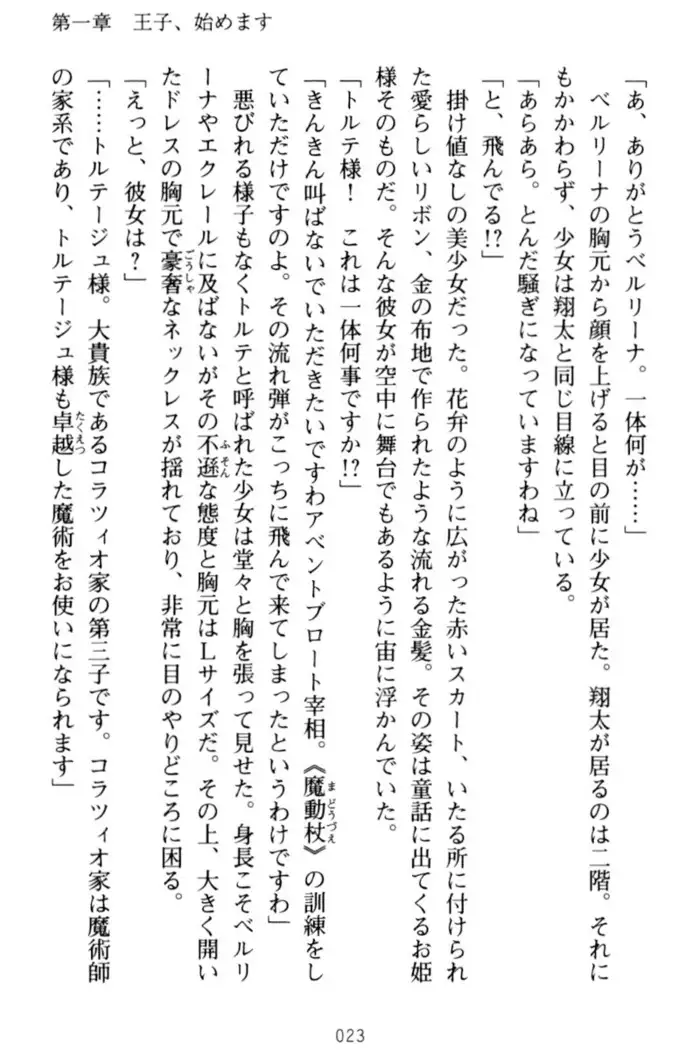 第一章　王子、始めます
「あ、ありがとうベルリーナ。一体何が……」
　ベルリーナの胸元から顔を上げると目の前に少女が居た。翔太が居るのは二階。それに
もかかわらず、少女は翔太と同じ目線に立っている。
「あらあら。とんだ騒ぎになっていますわね」
「と、飛んでる!?」
　掛け値なしの美少女だった。花弁のように広がった赤いスカート、いたる所に付けられ
た愛らしいリボン、金の布地で作られたような流れる金髪。その姿は童話に出てくるお姫
様そのものだ。そんな彼女が空中に舞台でもあるように宙に浮かんでいた。
「トルテ様！　これは一体何事ですか!?」
「きんきん叫ばないでいただきたいですわアベントブロート宰相。《魔動杖》の訓練をし
ていただけですのよ。その流れ弾がこっちに飛んで来てしまったというわけですわ」
　悪びれる様子もなくトルテと呼ばれた少女は堂々と胸を張って見せた。身長こそベルリ
ーナやエクレールに及ばないがその不遜な態度と胸元はＬサイズだ。その上、大きく開い
たドレスの胸元で豪奢なネックレスが揺れており、非常に目のやりどころに困る。
「えっと、彼女は？」
「……トルテージュ様。大貴族であるコラツィオ家の第三子です。コラツィオ家は魔術師
の家系であり、トルテージュ様も卓越した魔術をお使いになられます」
023